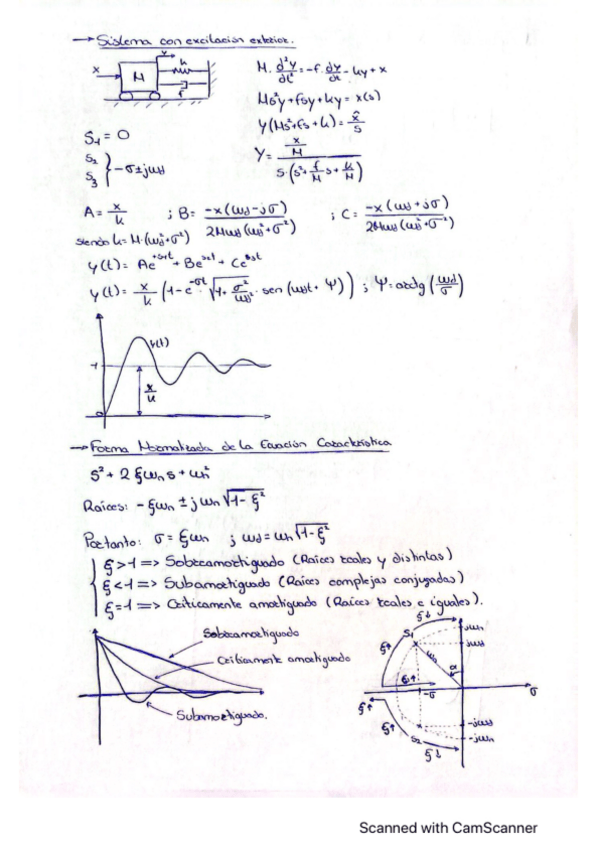 → Sistema con excitación exterior.
x M y k f
M · d²y/dt² = -f · dy/dt - ky + x
Ms²y + fsy + ky = x(s)
y(Ms² + fs + k) = x/s
S₁ = 0
S₂
S₃ } -σ ± jωd
Y = (x/M) / (s · (s² + f/M s + k/M))
A = x/k ; B = -x(ωd - jσ) / 2Mωd(ωd² + σ²) ; C = -x(ωd + jσ) / 2Mωd(ωd² + σ²)
siendo k = M·(ωd² + σ²)
y(t) = Ae^{+s₁t} + Be^{s₂t} + Ce^{s₃t}
y(t) = x/k (1 - e^{-σt} · √(1 + σ²/ωd²) · sen(ωdt + Ψ)) ; Ψ = arctg(ωd/σ)
y(t)
1
x/k
0
→ Forma Normalizada de la Ecuación Característica
s² + 2ξωn s + ωn²
Raíces: -ξωn ± jωn√(1 - ξ²)
Portanto: σ = ξωn ; ωd = ωn√(1 - ξ²)
ξ > 1 => Sobreamortiguado (Raíces reales y distintas)
ξ < 1 => Subamortiguado (Raíces complejas conjugadas)
ξ = 1 => Críticamente amortiguado (Raíces reales e iguales).
Sobreamortiguado
Críticamente amortiguado
Subamortiguado.
ξ↓
S₁
jωn
jωd
ξ↑
ωn
α
σ↑
-σ
σ
ξ↑
-jωd
-jωn
ξ↑
S₂
ξ↓
Scanned with CamScanner